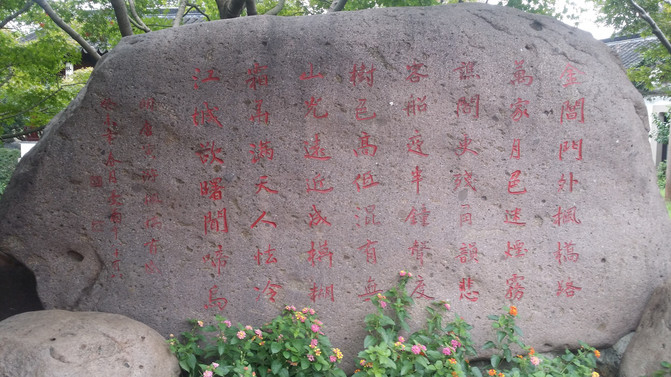 金閶門外楓橋路
萬家月色迷煙霧
譙閣更殘角韻悲
客船夜半鐘聲度
樹色高低混有無
山光遠近成模糊
霜華滿天人怯冷
江城欲曙聞啼烏
明唐寅